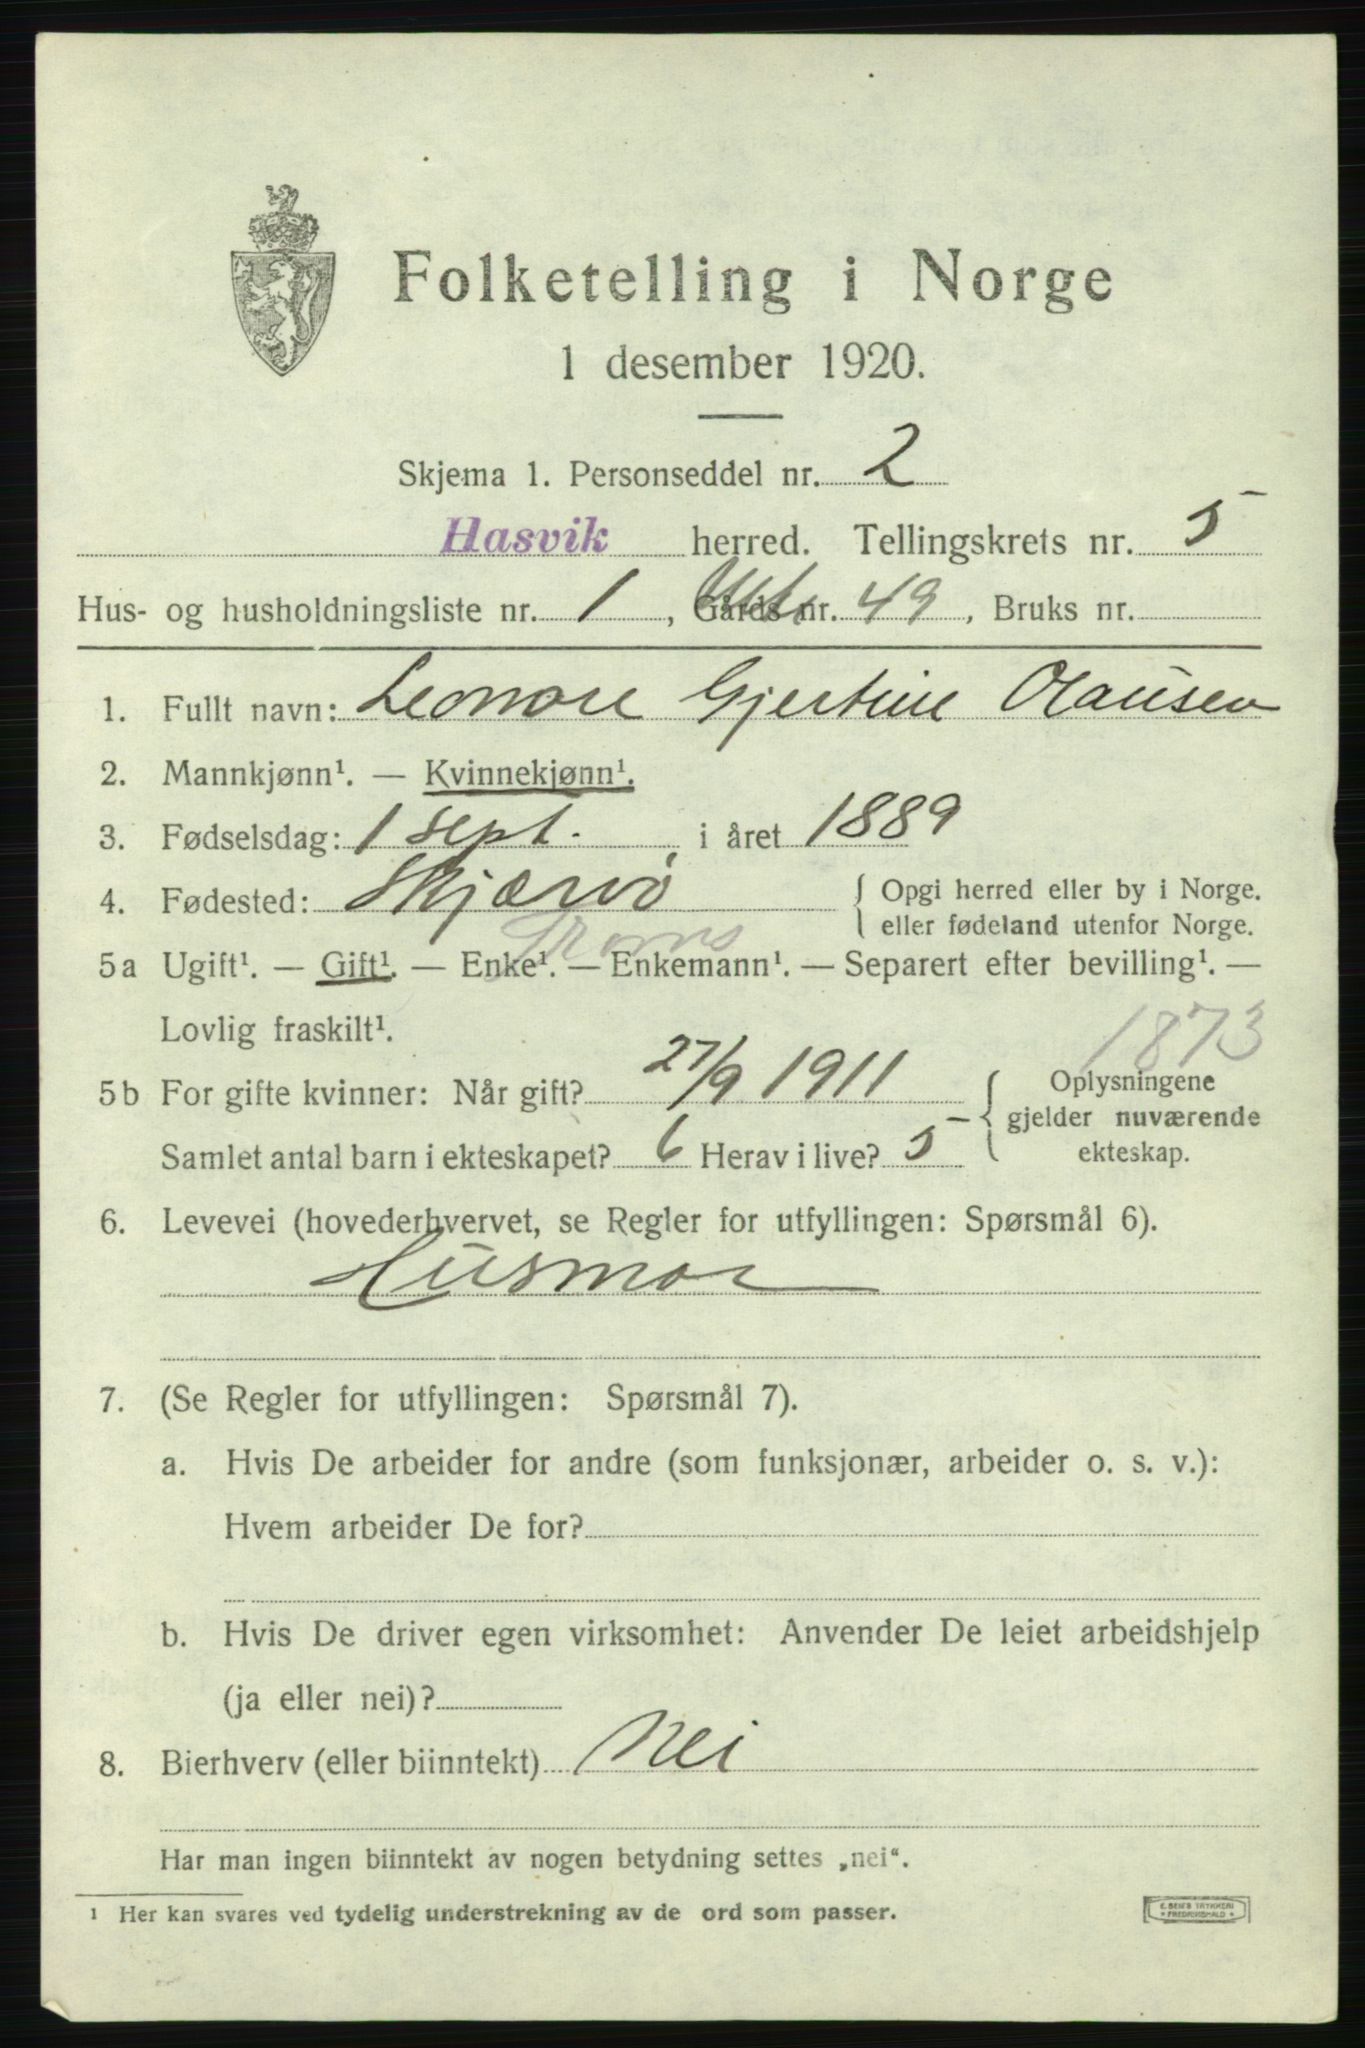 Folketelling i Norge
1 desember 1920.
Skjema 1. Personseddel nr. 2
Hasvik herred. Tellingskrets nr. 5
Hus- og husholdningsliste nr. 1, Gårds nr. 49, Bruks nr.
1. Fullt navn: Leonore Gjertine Olausen
2. Mannkjønn¹. — Kvinnekjønn¹.
3. Fødselsdag: 1 sept. i året 1889
4. Fødested: Skjærvø { Opgi herred eller by i Norge.
eller fødeland utenfor Norge.
Troms
5a Ugift¹. — Gift¹. — Enke¹. — Enkemann¹. — Separert efter bevilling¹. —
Lovlig fraskilt¹.
1873
5b For gifte kvinner: Når gift? 27/9 1911 { Oplysningene
gjelder nuværende
Samlet antal barn i ekteskapet? 6 Herav i live? 5 ekteskap.
6. Levevei (hovederhvervet, se Regler for utfyllingen: Spørsmål 6).
Husmor
7. (Se Regler for utfyllingen: Spørsmål 7).
a. Hvis De arbeider for andre (som funksjonær, arbeider o. s. v.):
Hvem arbeider De for?
b. Hvis De driver egen virksomhet: Anvender De leiet arbeidshjelp
(ja eller nei)?
8. Bierhverv (eller biinntekt) Nei
Har man ingen biinntekt av nogen betydning settes „nei“.
¹ Her kan svares ved tydelig understrekning av de ord som passer.